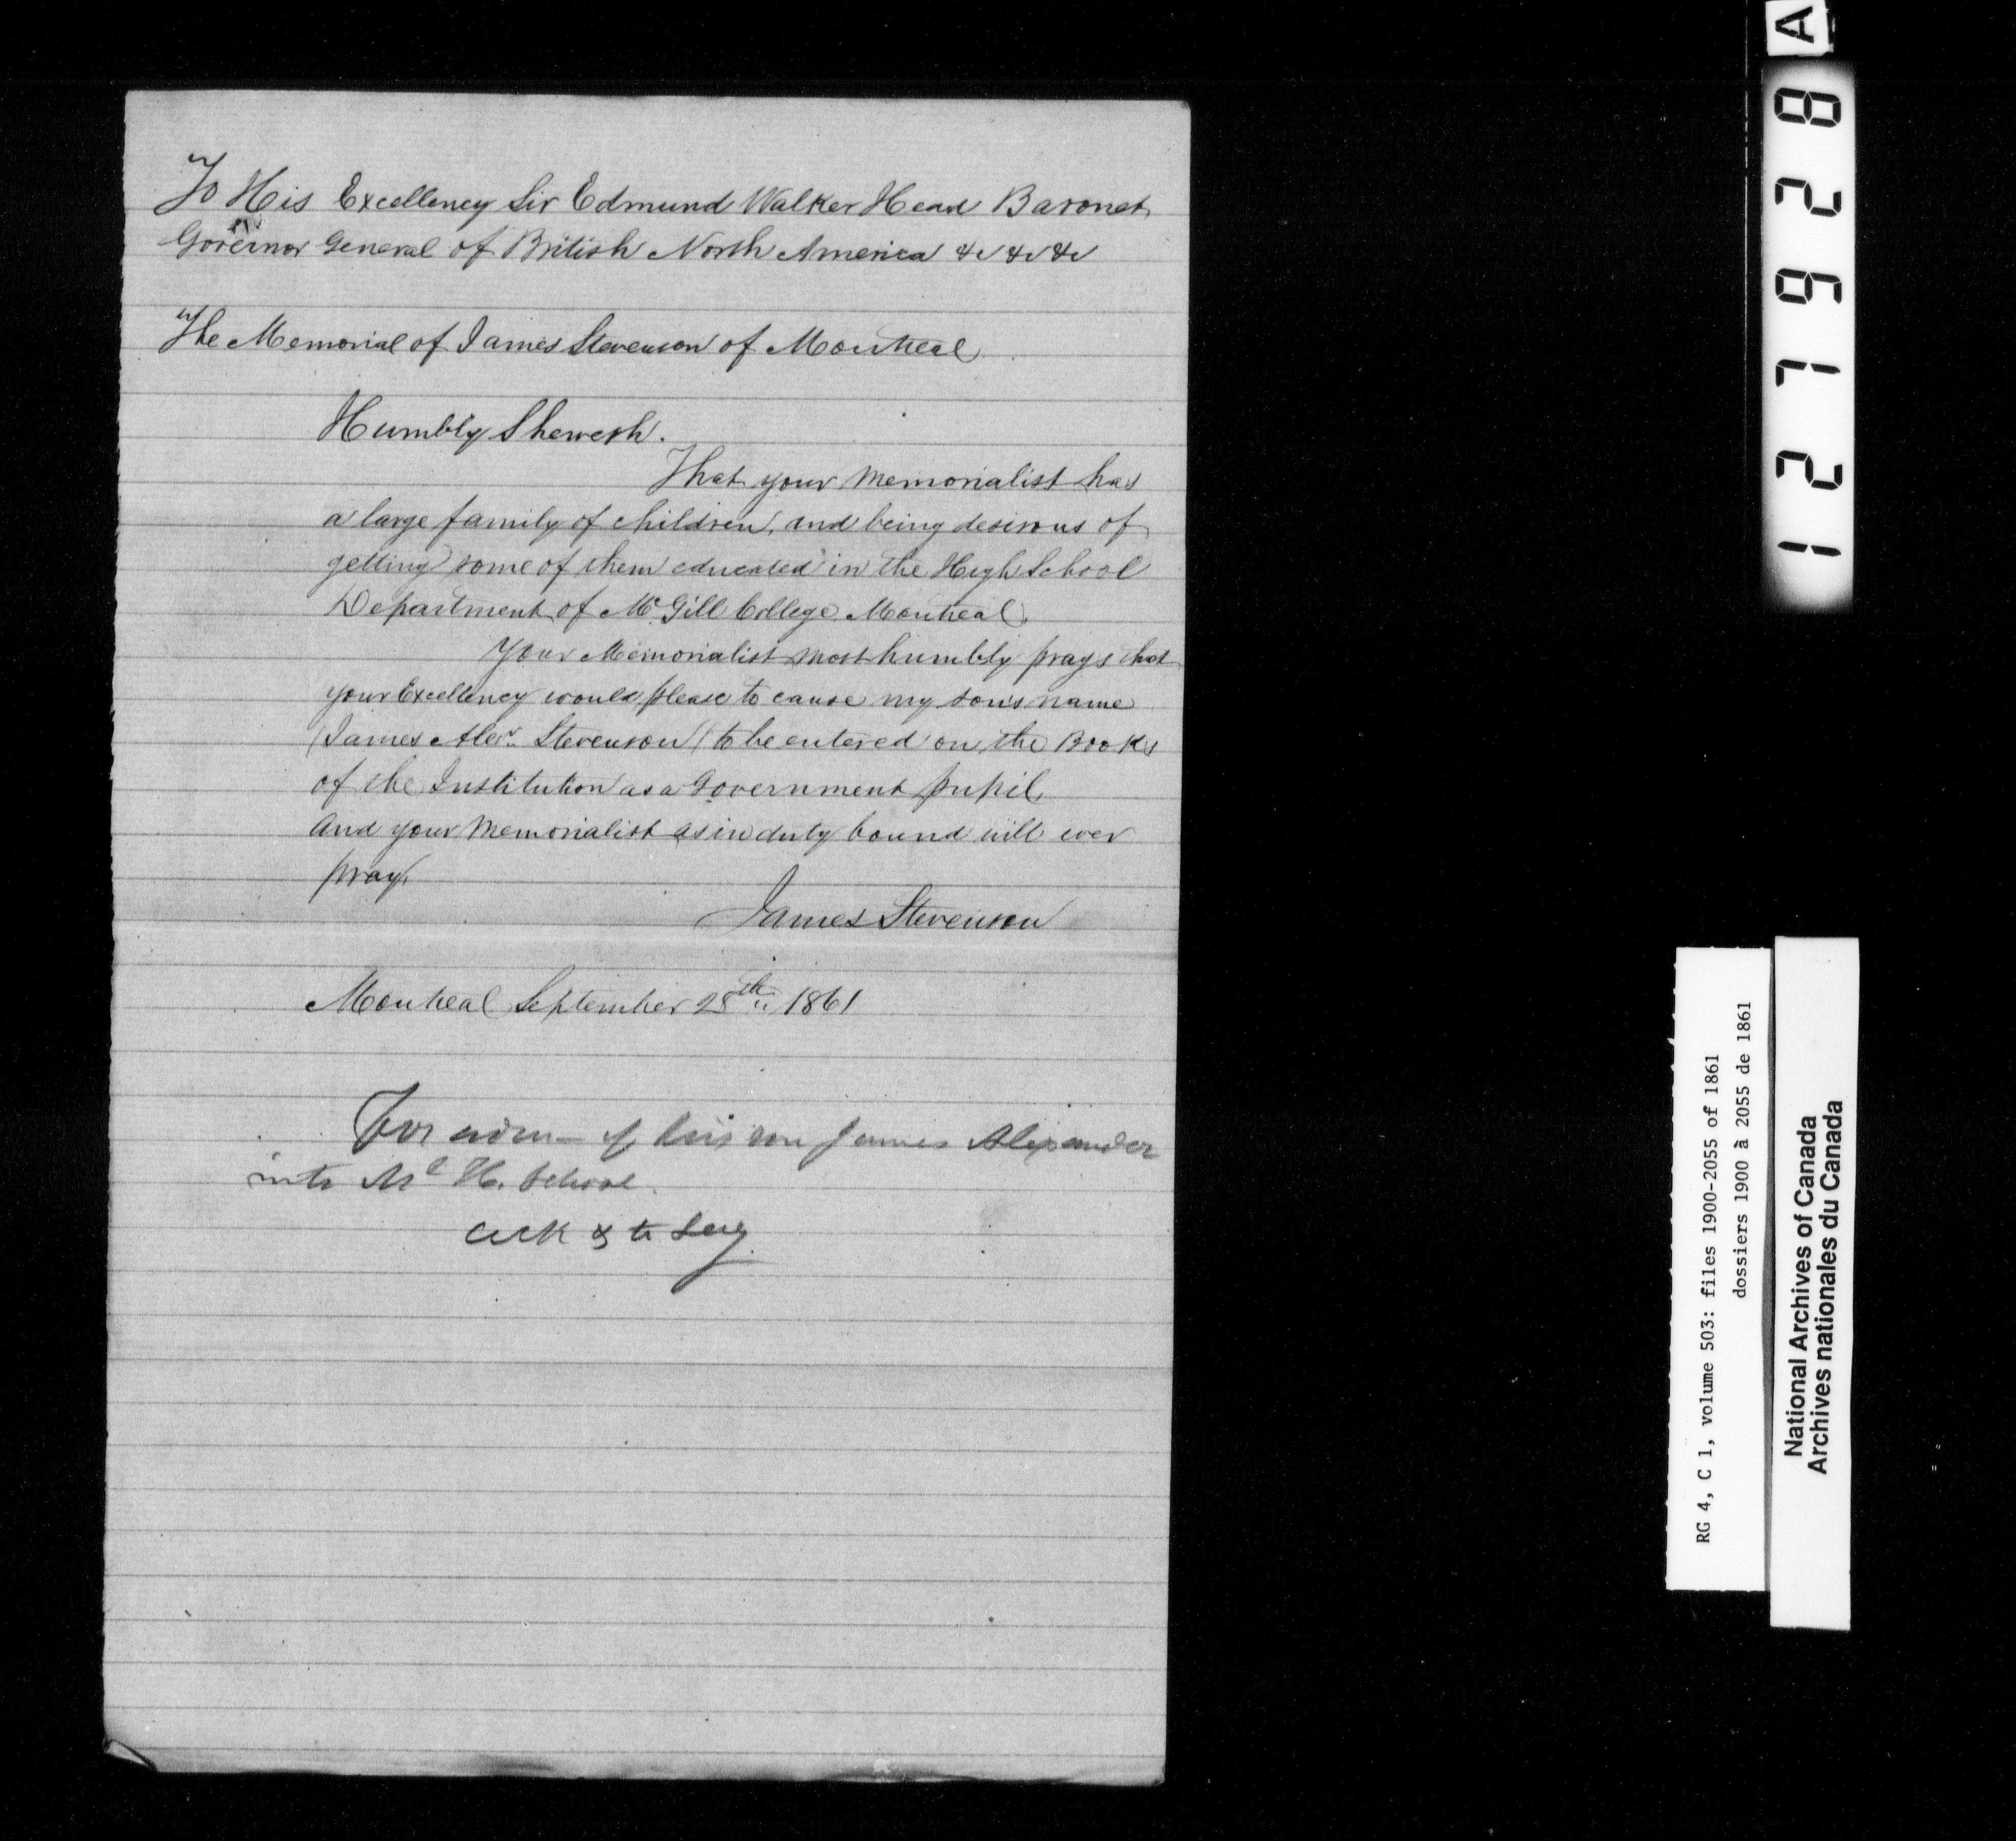 To His Excellency Sir Edmund Walker Head Baronet
Governor General of British North America &c &c &c
The Memorial of James Stevenson of Montreal
Humbly Sheweth.
That your Memorialist has
a large family of children, and being desirous of
getting some of them educated in the High School
Department of Mc.Gill College Montreal.
Your Memorialist most humbly prays that
your Excellency would please to cause my son's name
(James Alexr. Stevenson) to be entered on the Books
of the Institution as a Government pupil,
And your Memorialist as in duty bound will ever
pray.
James Stevenson
Montreal September 28th 1861
For adm of his son James Alexander
into Ml H. School.
Ack & to
A
127928
RG 4, C 1, volume 503: files 1900-2055 of 1861
dossiers 1900 à 2055 de 1861
National Archives of Canada
Archives nationales du Canada